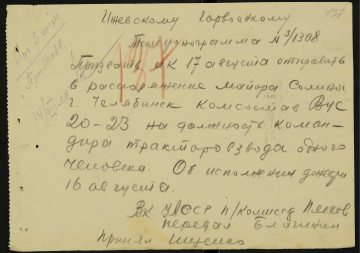 Ижевскому Горвоенкому
Телефонограмма №3/1308
Призвать и к 17 августа отправить
в распоряжение майора
г. Челябинск комсостав ВУС
20-23 на должность коман-
дира тракторовзвода одного
человека. Об исполнении донести
16 августа.
ВК УАССР п/комиссар
передал
Принял Ищенко
137